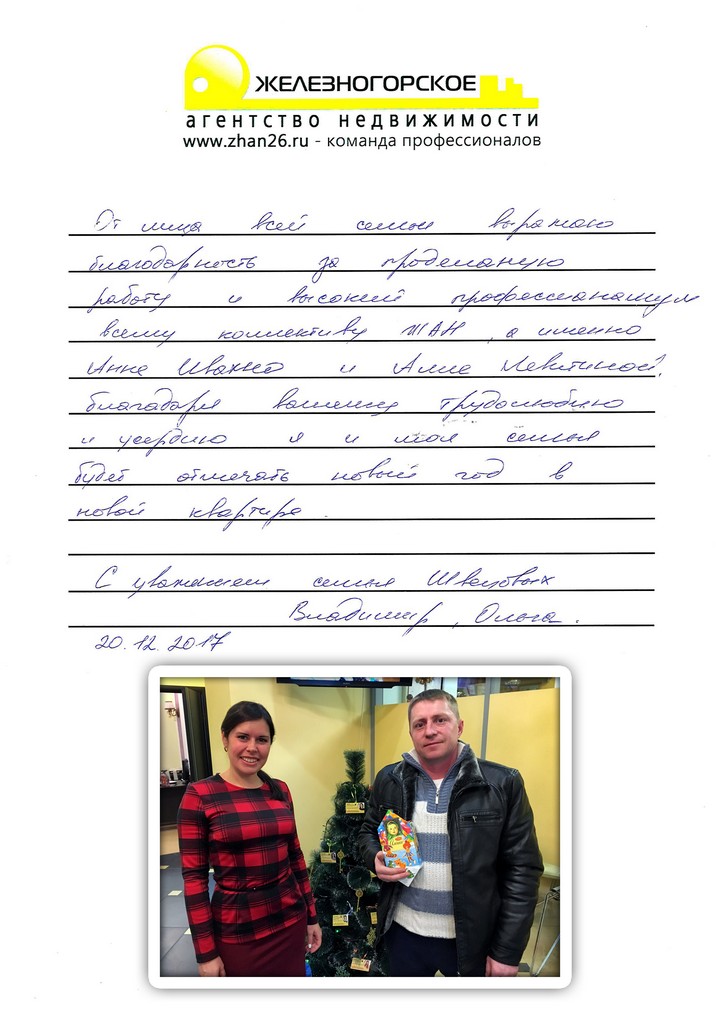 ЖЕЛЕЗНОГОРСКОЕ
агентство недвижимости
www.zhan26.ru - команда профессионалов
От лица всей семьи выражаю
благодарность за проделаную
работу и высокий профессионализм
всему коллективу ЖАН, а именно
Анне Ивахно и Алле Левитиной,
благодаря вашему трудолюбию
и усердию я и моя семья
будет отмечать новый год в
новой квартире.
С уважением семья Швецовых
Владимир, Ольга.
20.12.2017